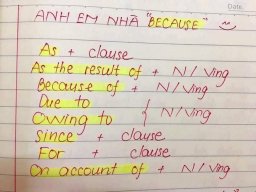 Date
ANH EM NHÀ "BECAUSE"
As + clause
As the result of + N/Ving
Because of + N/Ving
Due to
Owing to { N/Ving
Since + clause
For + clause
On account of + N/Ving